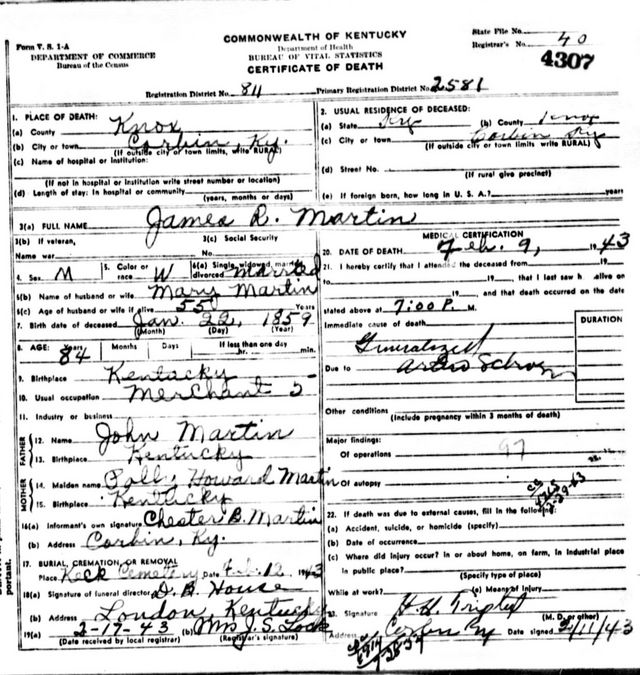 Form V. S. 1-A
DEPARTMENT OF COMMERCE
Bureau of the Census
COMMONWEALTH OF KENTUCKY
Department of Health
BUREAU OF VITAL STATISTICS
CERTIFICATE OF DEATH
State File No.
Registrar's No. 40
4307
Registration District No. 84 Primary Registration District No. 2581
1. PLACE OF DEATH:
(a) County Knox
(b) City or town Corbin, Ky.
(If outside city or town limits, write RURAL)
(c) Name of hospital or institution:
(If not in hospital or institution write street number or location)
(d) Length of stay: In hospital or community
(years, months or days)
2. USUAL RESIDENCE OF DECEASED:
(a) State Ky (b) County Knox
(c) City or town Corbin Ky
(If outside city or town limits, write RURAL)
(d) Street No.
(If rural give precinct)
(e) If foreign born, how long in U. S. A.? years
3(a) FULL NAME James R. Martin
3(b) If veteran,
Name war
3(c) Social Security
No.
4. Sex M
5. Color or race W
6(a) Single, widowed, married, divorced Married
6(b) Name of husband or wife Mary Martin
6(c) Age of husband or wife if alive 55 Years
7. Birth date of deceased Jan. 22, 1859
(Month) (Day) (Year)
8. AGE: Years 84 Months Days If less than one day
hr. min.
9. Birthplace Kentucky
10. Usual occupation Merchant 5
11. Industry or business
FATHER
12. Name John Martin
13. Birthplace Kentucky
MOTHER
14. Maiden name Polly Howard Martin
15. Birthplace Kentucky
16(a) Informant's own signature Chester B. Martin
(b) Address Corbin, Ky.
17. BURIAL, CREMATION, OR REMOVAL
Place Keck Cemetery Date Feb. 12 1943
18(a) Signature of funeral director D. B. House
(b) Address London, Kentucky
19(a) 2-17-43 (b) Mrs J. S. Lock
(Date received by local registrar) (Registrar's signature)
MEDICAL CERTIFICATION
20. DATE OF DEATH Feb. 9, 1943
21. I hereby certify that I attended the deceased from 19
to 19, that I last saw h alive on
19, and that death occurred on the date
stated above at 7:00 P. M.
DURATION
Immediate cause of death
Generalized
Due to
Other conditions
(Include pregnancy within 3 months of death)
Major findings:
Of operations 97
Of autopsy
22. If death was due to external causes, fill in the following:
(a) Accident, suicide, or homicide (specify)
(b) Date of occurrence
(c) Where did injury occur? In or about home, on farm, in industrial place
in public place?
(Specify type of place)
While at work? (e) Means of injury
23. Signature H. H. Triplett
(M. D. or other)
Address Corbin Ky Date signed 2/11/43
portant.